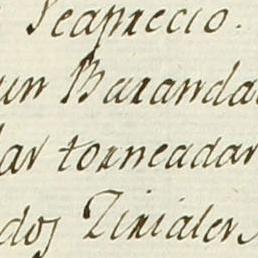 Seaprecio.
un Baranda
dar torneadar
dos Zirialer